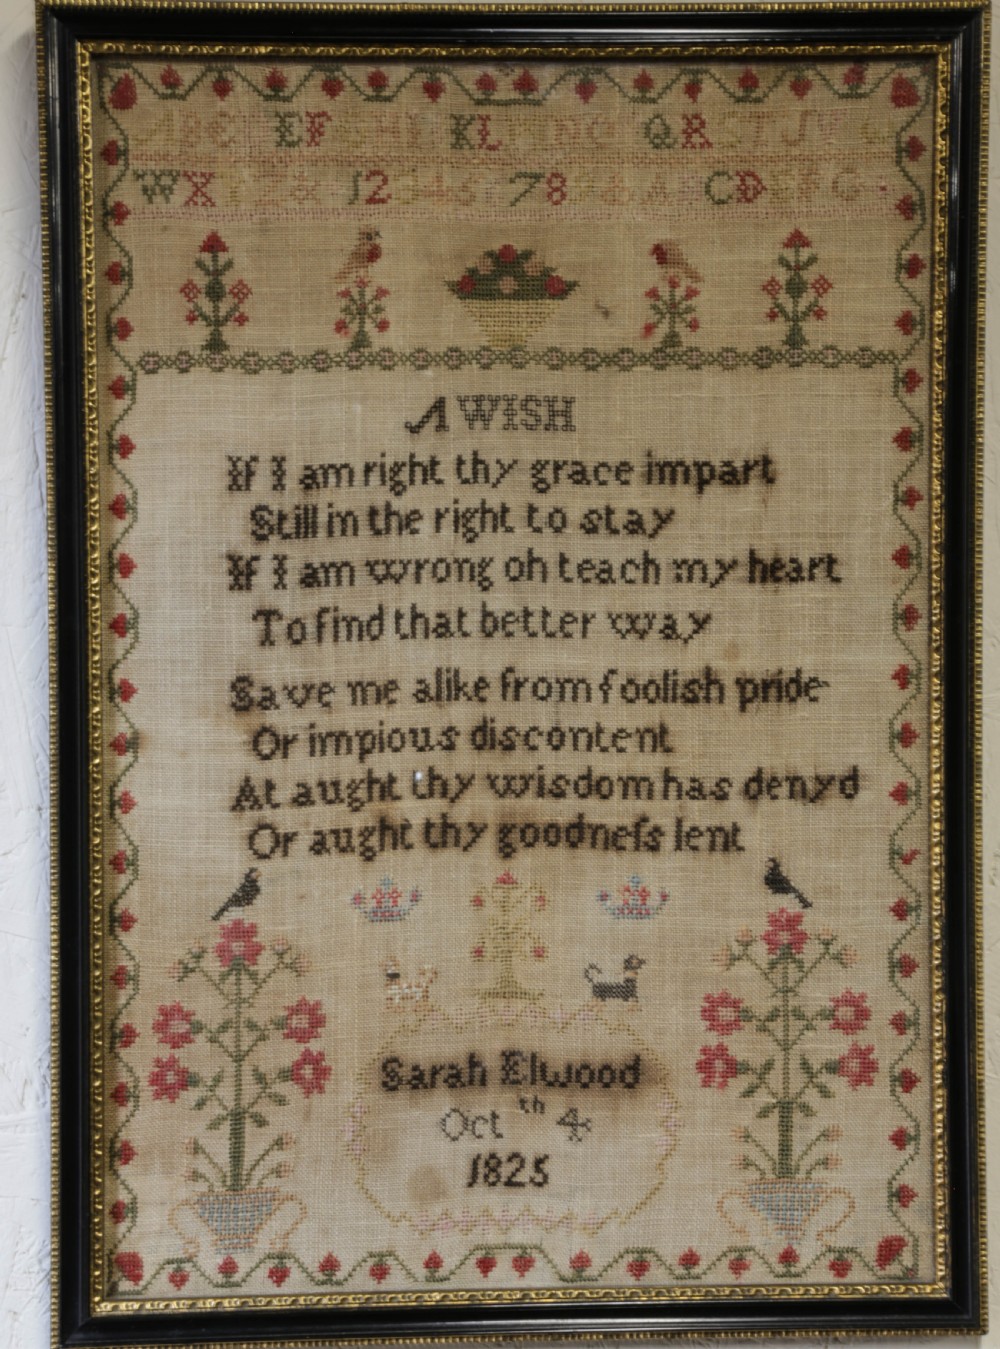 A B C D E F G H I K L M N O P Q R S T U V
W X Y Z & 1 2 3 4 5 6 7 8 9 A B C D E F G
A WISH
If I am right thy grace impart
Still in the right to stay
If I am wrong oh teach my heart
To find that better way
Save me alike from foolish pride
Or impious discontent
At aught thy wisdom has denyd
Or aught thy goodneſs lent
Sarah Elwood
Oct th 4
1825